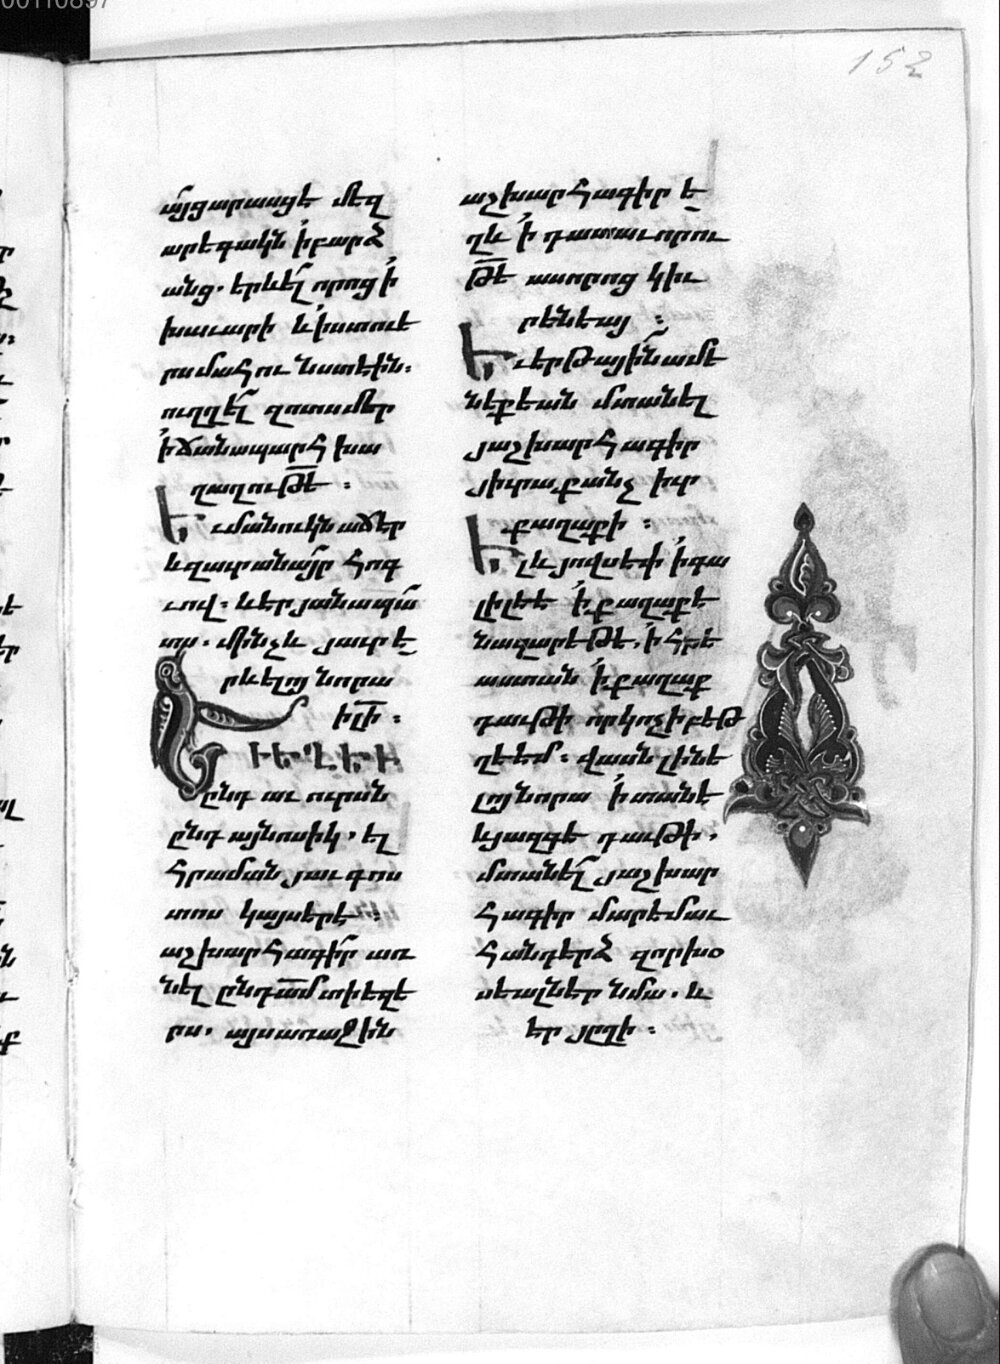 00110897
152
այցարասցէ մեզ
արեգակն ՛ի բարձ
անց. երևել որոց ՛ի
խաւարի և ՛ի ստուե
րս մահու նստէին.
ուղղել զոտս մեր
՛ի ճանապարհ խա
ղաղութե :
Եւ մանուկն աճէր
և զաւրանայր հոգ
ւով. և էր յանապա
տս. մինչև յաւր է
րևելոյ նորա
իլի :
Ե ՂԵՒ
ընդ աւուրսն
ընդ այնոսիկ. ել
հրաման յաւգոս
տոս կայսերէ :
աշխարհագիր առ
նել ընդամ տիեզե
րս. այս առաջին
աշխարհագիր է
ղև ՛ի դատաւորու
թե ասորոց կիւ
րենեայ :
Եւ երթային ամե
նեքեան մտանել
յաշխարհագիր
յիւրաքանչ իւր
քաղաքի :
Ել և յովսեփ ՛ի գա
լիլեե ՛ի քաղաքէ
նազարեթե, ՛ի հրէ
աստան ՛ի քաղաք
դաւթի որ կոչի բեթ
ղեեմ : վասն լինե
լոյ նորա ՛ի տանէ
և յազգե դաւթի,
մտանել յաշխար
հագիր մարեմաւ
հանդերձ զոր խօ
սեալն էր նմա. և
էր յղի :